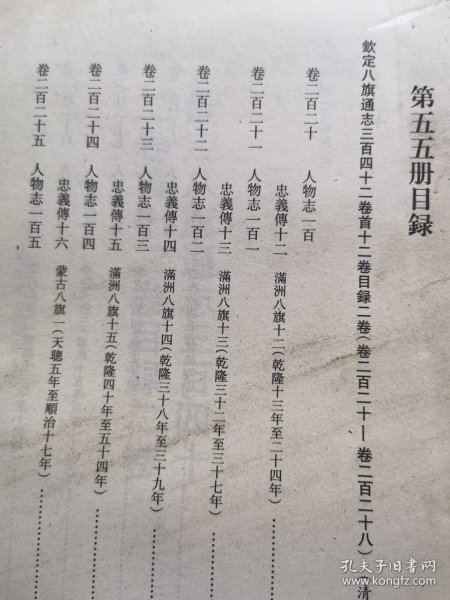 第五五册目録
欽定八旗通志三百四十二卷首十二卷目録二卷(卷二百二十—卷二百二十八)清
卷二百二十 人物志一百
忠義傳十二 滿洲八旗十二(乾隆十三年至二十四年)
卷二百二十一 人物志一百一
忠義傳十三 滿洲八旗十三(乾隆三十二年至三十七年)
卷二百二十二 人物志一百二
忠義傳十四 滿洲八旗十四(乾隆三十八年至三十九年)
卷二百二十三 人物志一百三
忠義傳十五 滿洲八旗十五(乾隆四十年至五十四年)
卷二百二十四 人物志一百四
忠義傳十六 蒙古八旗一(天聰五年至順治十七年)
卷二百二十五 人物志一百五
孔夫子旧书网
www.kongfz.com